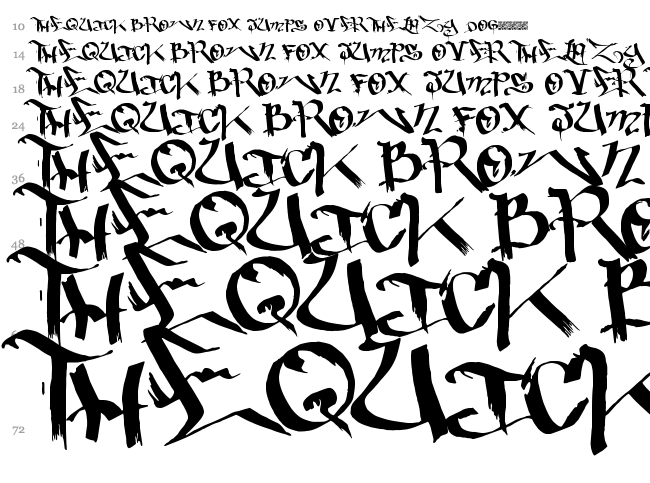 10 THE QUICK BROWN FOX JUMPS OVER THE LAZY DOG
14 THE QUICK BROWN FOX JUMPS OVER THE LAZY
18 THE QUICK BROWN FOX JUMPS OVER
24 THE QUICK BROWN FOX JUMP
36 THE QUICK BROWN
48 THE QUICK BRO
THE QUICK B
72 THE QUICK